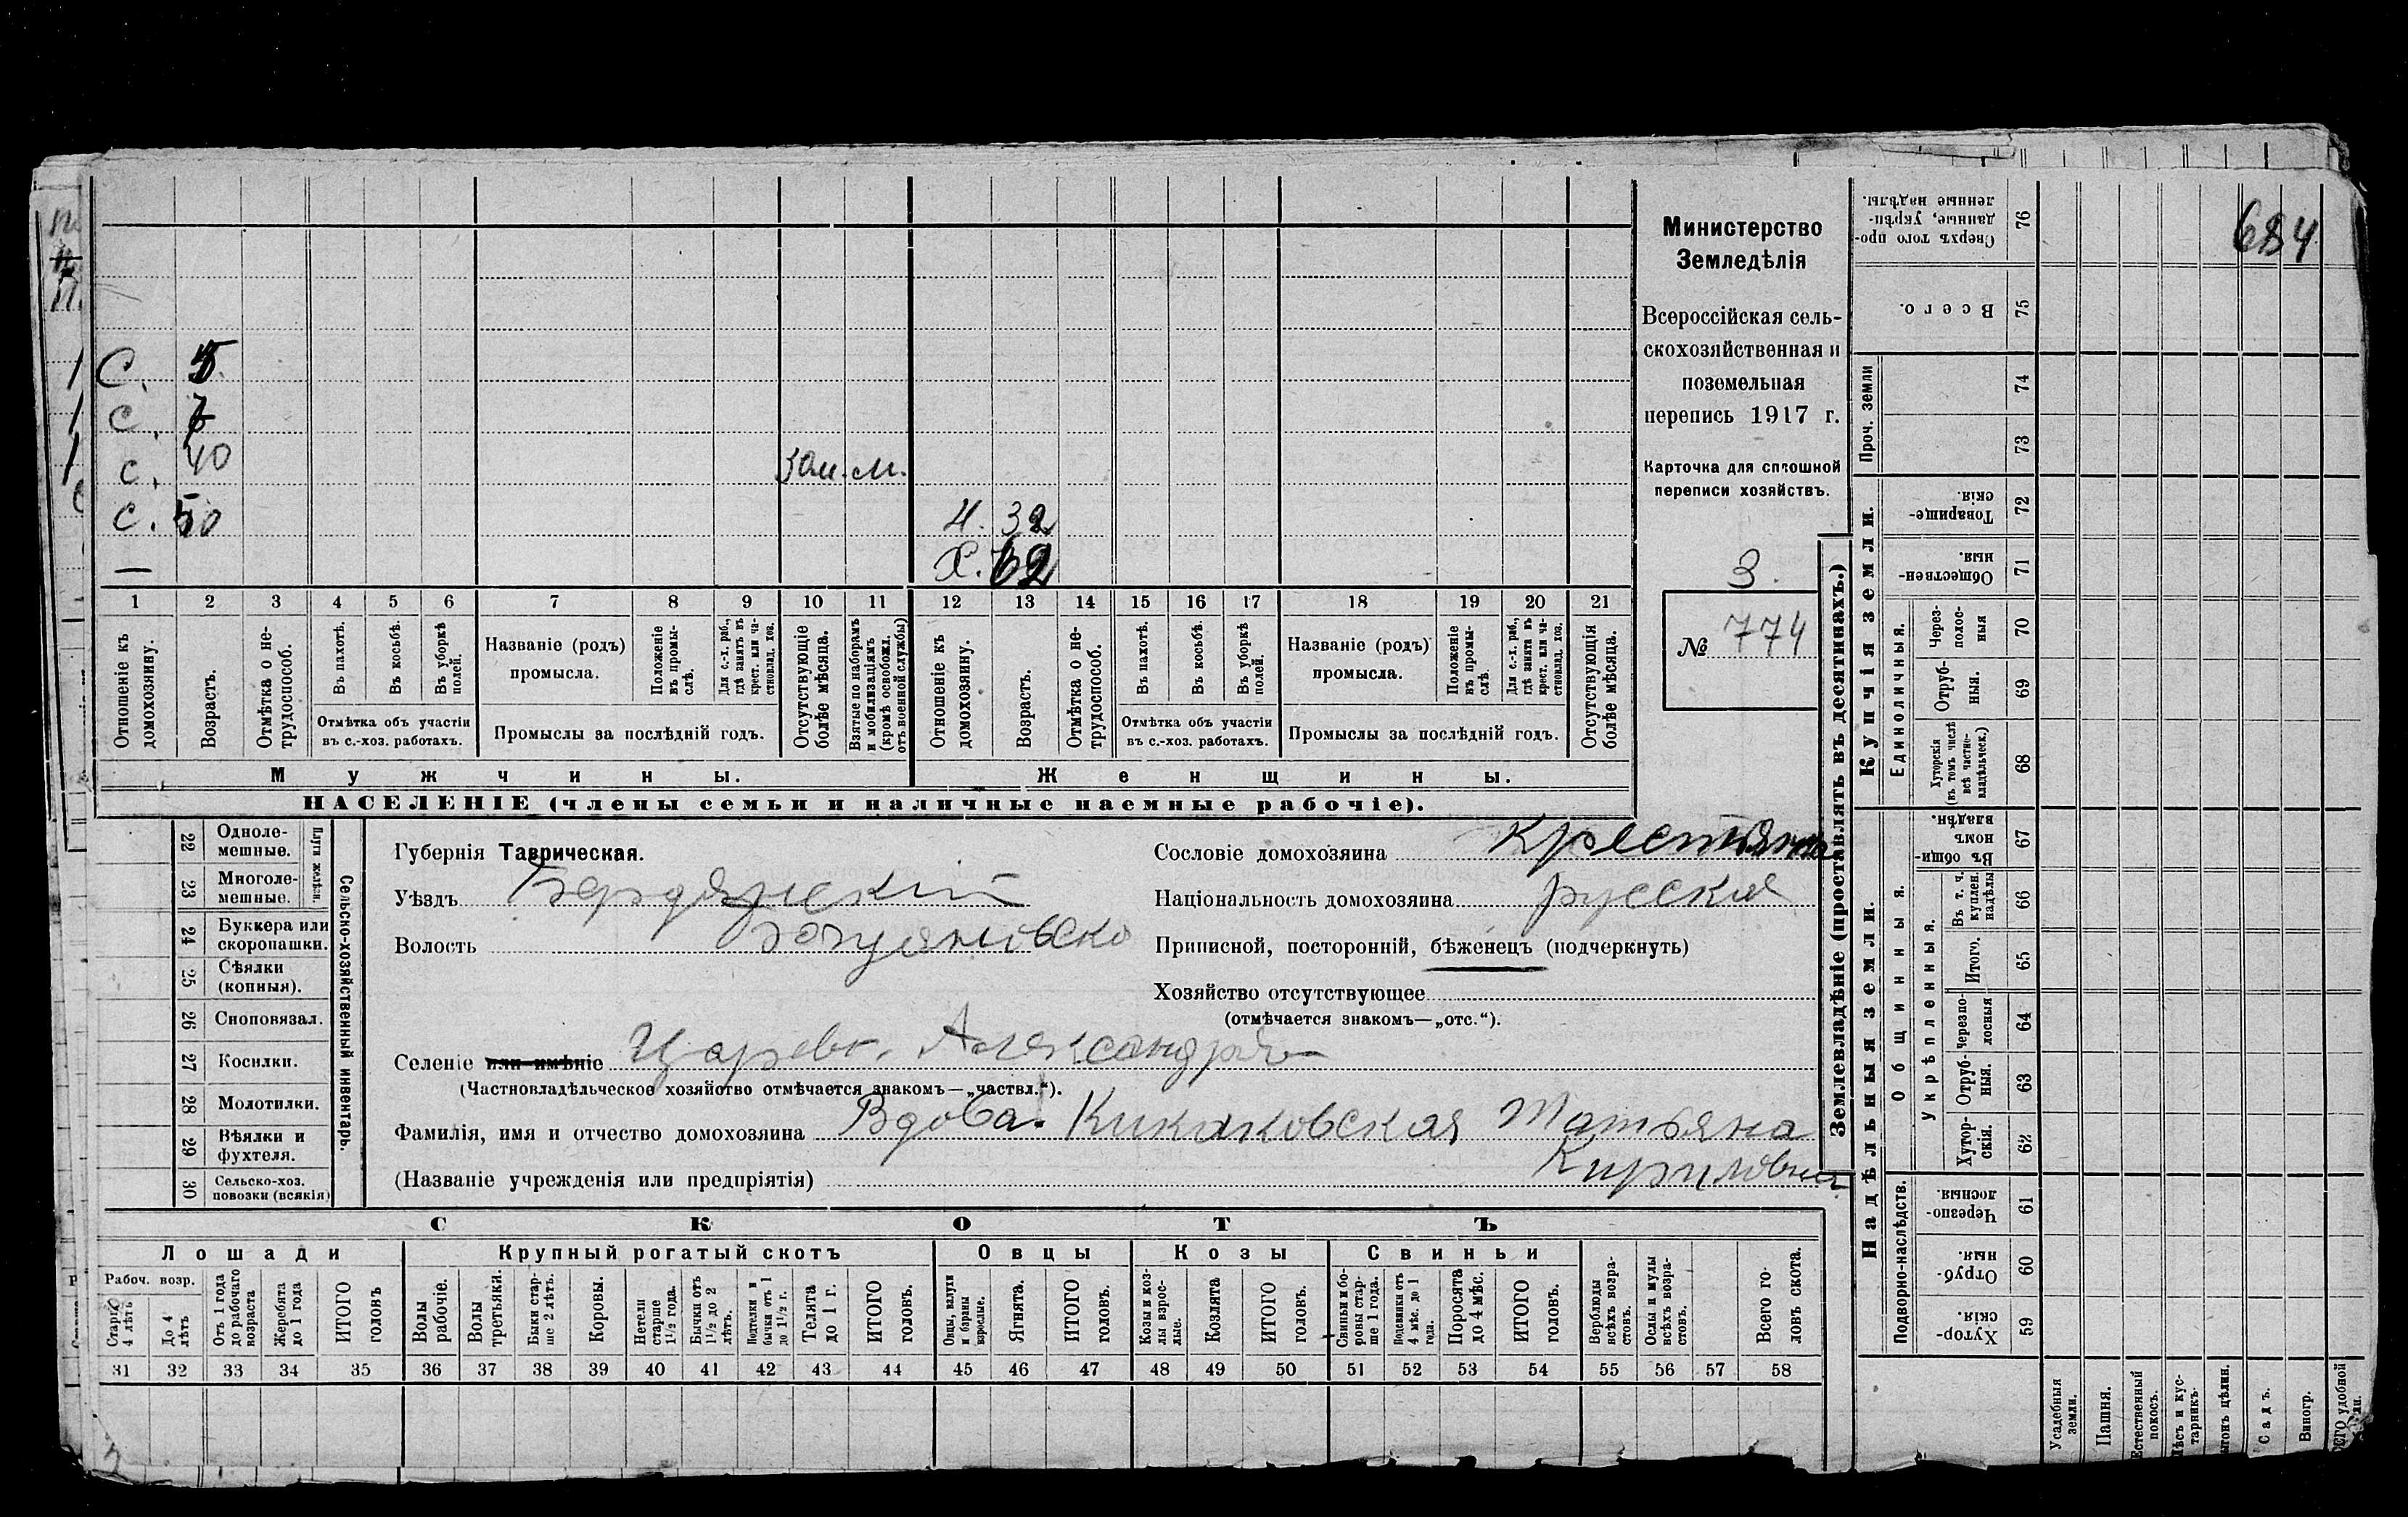 684
Министерство
Земледѣлія
Всероссійская сель-
скохозяйственная и
поземельная
перепись 1917 г.
Карточка для сплошной
переписи хозяйствъ.
3.
№ 774
С. 5
С. 7
С. 40 Зам. м.
С. 50 Н. 32
— Х. 62
1 2 3 4 5 6 7 8 9 10 11 12 13 14 15 16 17 18 19 20 21
Отношеніе къ домохозяину.
Возрастъ.
Отмѣтка о не-трудоспособ.
Въ пахотѣ.
Въ косьбѣ.
Въ уборкѣ полей.
Отмѣтка объ участіи
въ с.-хоз. работахъ.
Названіе (родъ)
промысла.
Положеніе въ промы-слѣ.
Для с.-х. раб., гдѣ занятъ въ крест. или ча-стновлад. хоз.
Промыслы за послѣдній годъ.
Отсутствующіе болѣе мѣсяца.
Взятые по наборамъ и мобилизаціямъ (кромѣ освобожд. отъ военной службы)
Отношеніе къ домохозяину.
Возрастъ.
Отмѣтка о не-трудоспособ.
Въ пахотѣ.
Въ косьбѣ.
Въ уборкѣ полей.
Отмѣтка объ участіи
въ с.-хоз. работахъ.
Названіе (родъ)
промысла.
Положеніе въ промы-слѣ.
Для с.-х. раб., гдѣ занятъ въ крест. или ча-стновлад. хоз.
Промыслы за послѣдній годъ.
Отсутствующія болѣе мѣсяца.
Мужчины. Женщины.
НАСЕЛЕНІЕ (члены семьи и наличные наемные рабочіе).
Сельско-хозяйственный инвентарь.
Плуги желѣзн.
22 Одноле-мешные.
23 Многоле-мешные.
24 Буккера или скоропашки.
25 Сѣялки (конныя).
26 Сноповязал.
27 Косилки.
28 Молотилки.
29 Вѣялки и фухтеля.
30 Сельско-хоз. повозки (всякія)
Губернія Таврическая.
Уѣздъ Бердянскій
Волость
Сословіе домохозяина крестьянка
Національность домохозяина русская
Приписной, посторонній, бѣженецъ (подчеркнуть)
Хозяйство отсутствующее
(отмѣчается знакомъ—„отс.“).
Селеніе или имѣніе Царево. Александрія
(Частновладѣльческое хозяйство отмѣчается знакомъ—„частвл.“).
Фамилія, имя и отчество домохозяина Вдова. Татьяна
Кириловна
(Названіе учрежденія или предпріятія)
СКОТЪ
Лошади Крупный рогатый скотъ Овцы Козы Свиньи
Рабоч. возр.
Старше 4 лѣтъ
До 4 лѣтъ
Отъ 1 года до рабочаго возраста
Жеребята до 1 года
ИТОГО головъ
Волы рабочіе.
Волы третьяки.
Быки стар-ше 2 лѣтъ.
Коровы.
Нетели старше 1½ года.
Бычки отъ 1½ до 2 лѣтъ.
Подтелки и бычки отъ 1 до 1½ г.
Телята до 1 г.
ИТОГО головъ.
Овцы, валухи и бараны взрослые.
Ягнята.
ИТОГО головъ.
Козы и коз-лы взрос-лые.
Козлята
ИТОГО головъ.
Свиньи и бо-ровы стар-ше 1 года.
Подсвинки отъ 4 мѣс. до 1 года.
Поросята до 4 мѣс.
ИТОГО головъ.
Верблюды всѣхъ возра-стовъ.
Ослы и мулы всѣхъ возра-стовъ.
Всего го-ловъ скота.
31 32 33 34 35 36 37 38 39 40 41 42 43 44 45 46 47 48 49 50 51 52 53 54 55 56 57 58
Землевладѣніе (проставлять въ десятинахъ.)
Купчія земли.
Надѣльныя земли.
Сверхъ того про-данные, укрѣп-ленные надѣлы. 76
Всего. 75
Проч. земли 74
73
Товарище-скія. 72
Обществен-ныя. 71
Единоличныя.
Через-полос-ныя 70
Отруб-ныя. 69
Хуторскія (въ томъ числѣ всѣ частно-владѣльческ.) 68
Общинныя.
Въ общи-номъ владѣн. 67
Укрѣпленныя.
Въ т. ч. куплен. надѣлы 66
Итого. 65
Черезпо-лосныя 64
Отруб-ныя. 63
Хутор-скія. 62
Подворно-наслѣдств.
Черезпо-лосныя. 61
Отруб-ныя. 60
Хутор-скія. 59
Усадебныя земли.
Пашня.
Естественный покосъ.
Лѣсъ и кус-тарникъ.
Садъ.
Виногр.